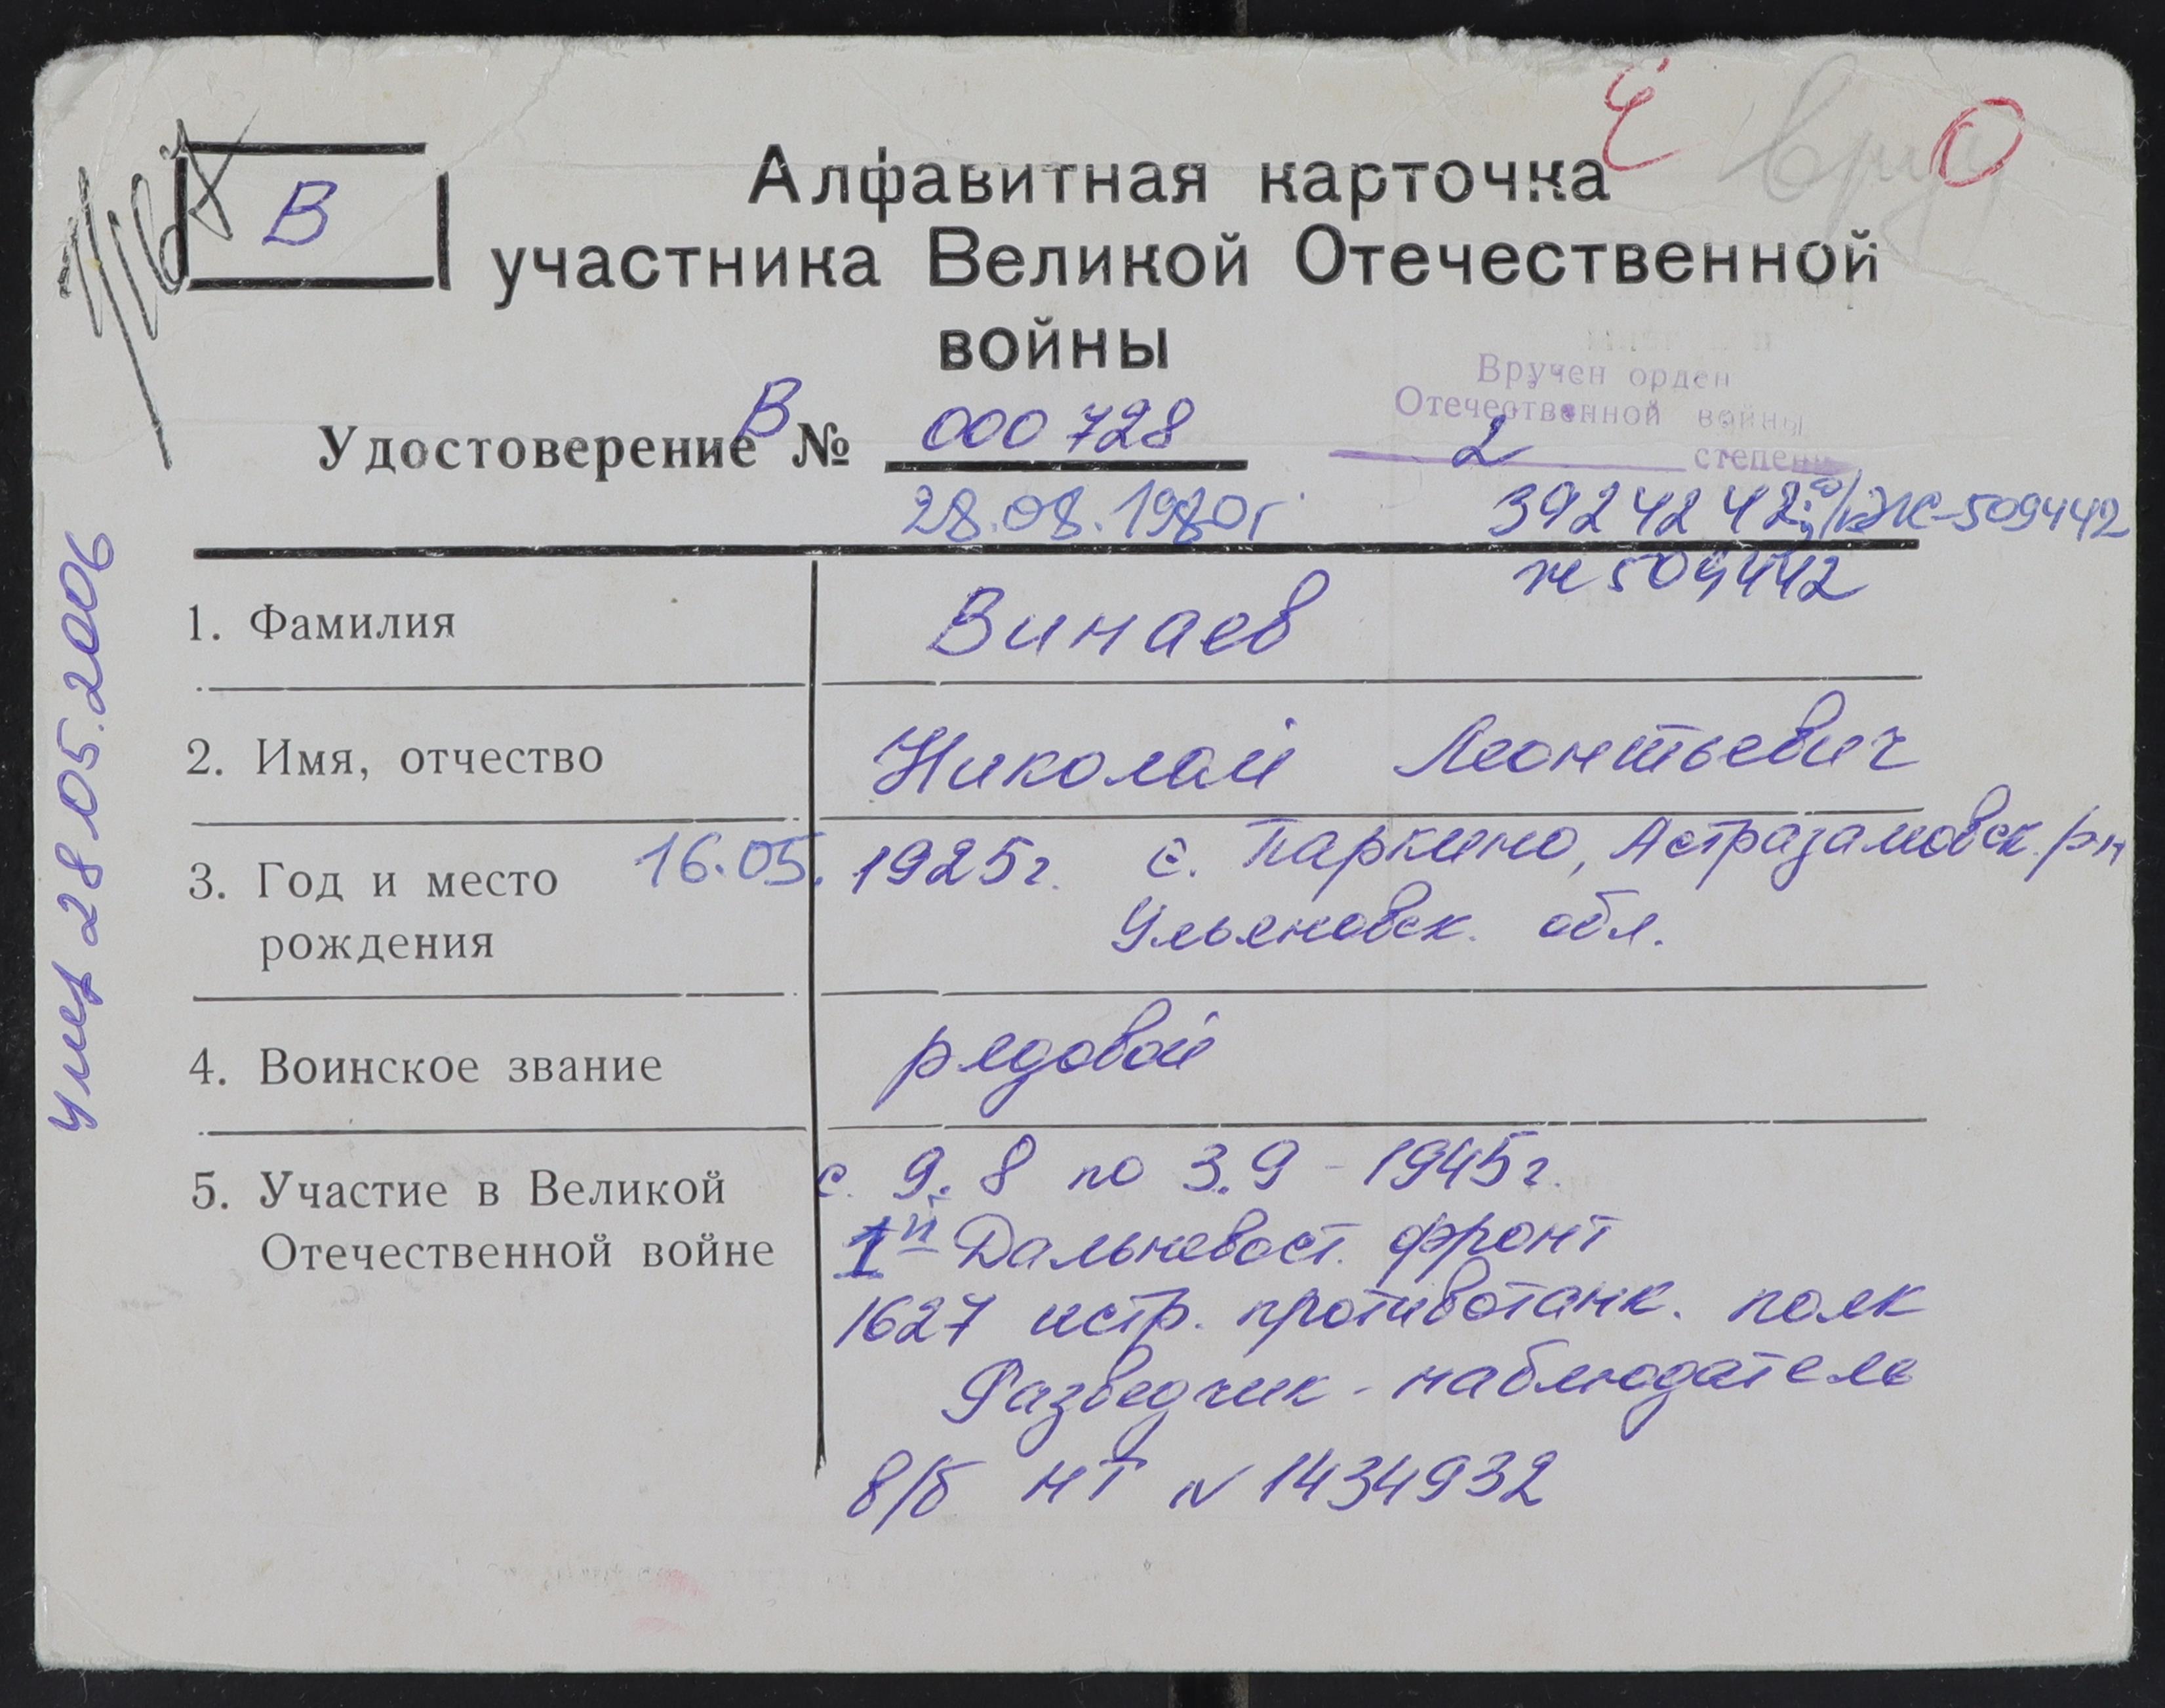 Е вруч О
В
Алфавитная карточка
участника Великой Отечественной
войны
Вручен орден
Отечественной войны
2 степени
Удостоверение В № 000 728
28.08.1980г
3924242; /ЖК-509442
ж 509442
1. Фамилия Винаев
2. Имя, отчество Николай Леонтьевич
3. Год и место 16.05. 1925г. с. Паркино, Астразамовск. р-н
рождения Ульяновск. обл.
4. Воинское звание рядовой
5. Участие в Великой с. 9.8 по 3.9 - 1945г.
Отечественной войне 1й Дальневост. фронт
1627 истр. противотанк. полк
Разведчик - наблюдатель
в/б НТ N 1434932
умер 28.05.2006